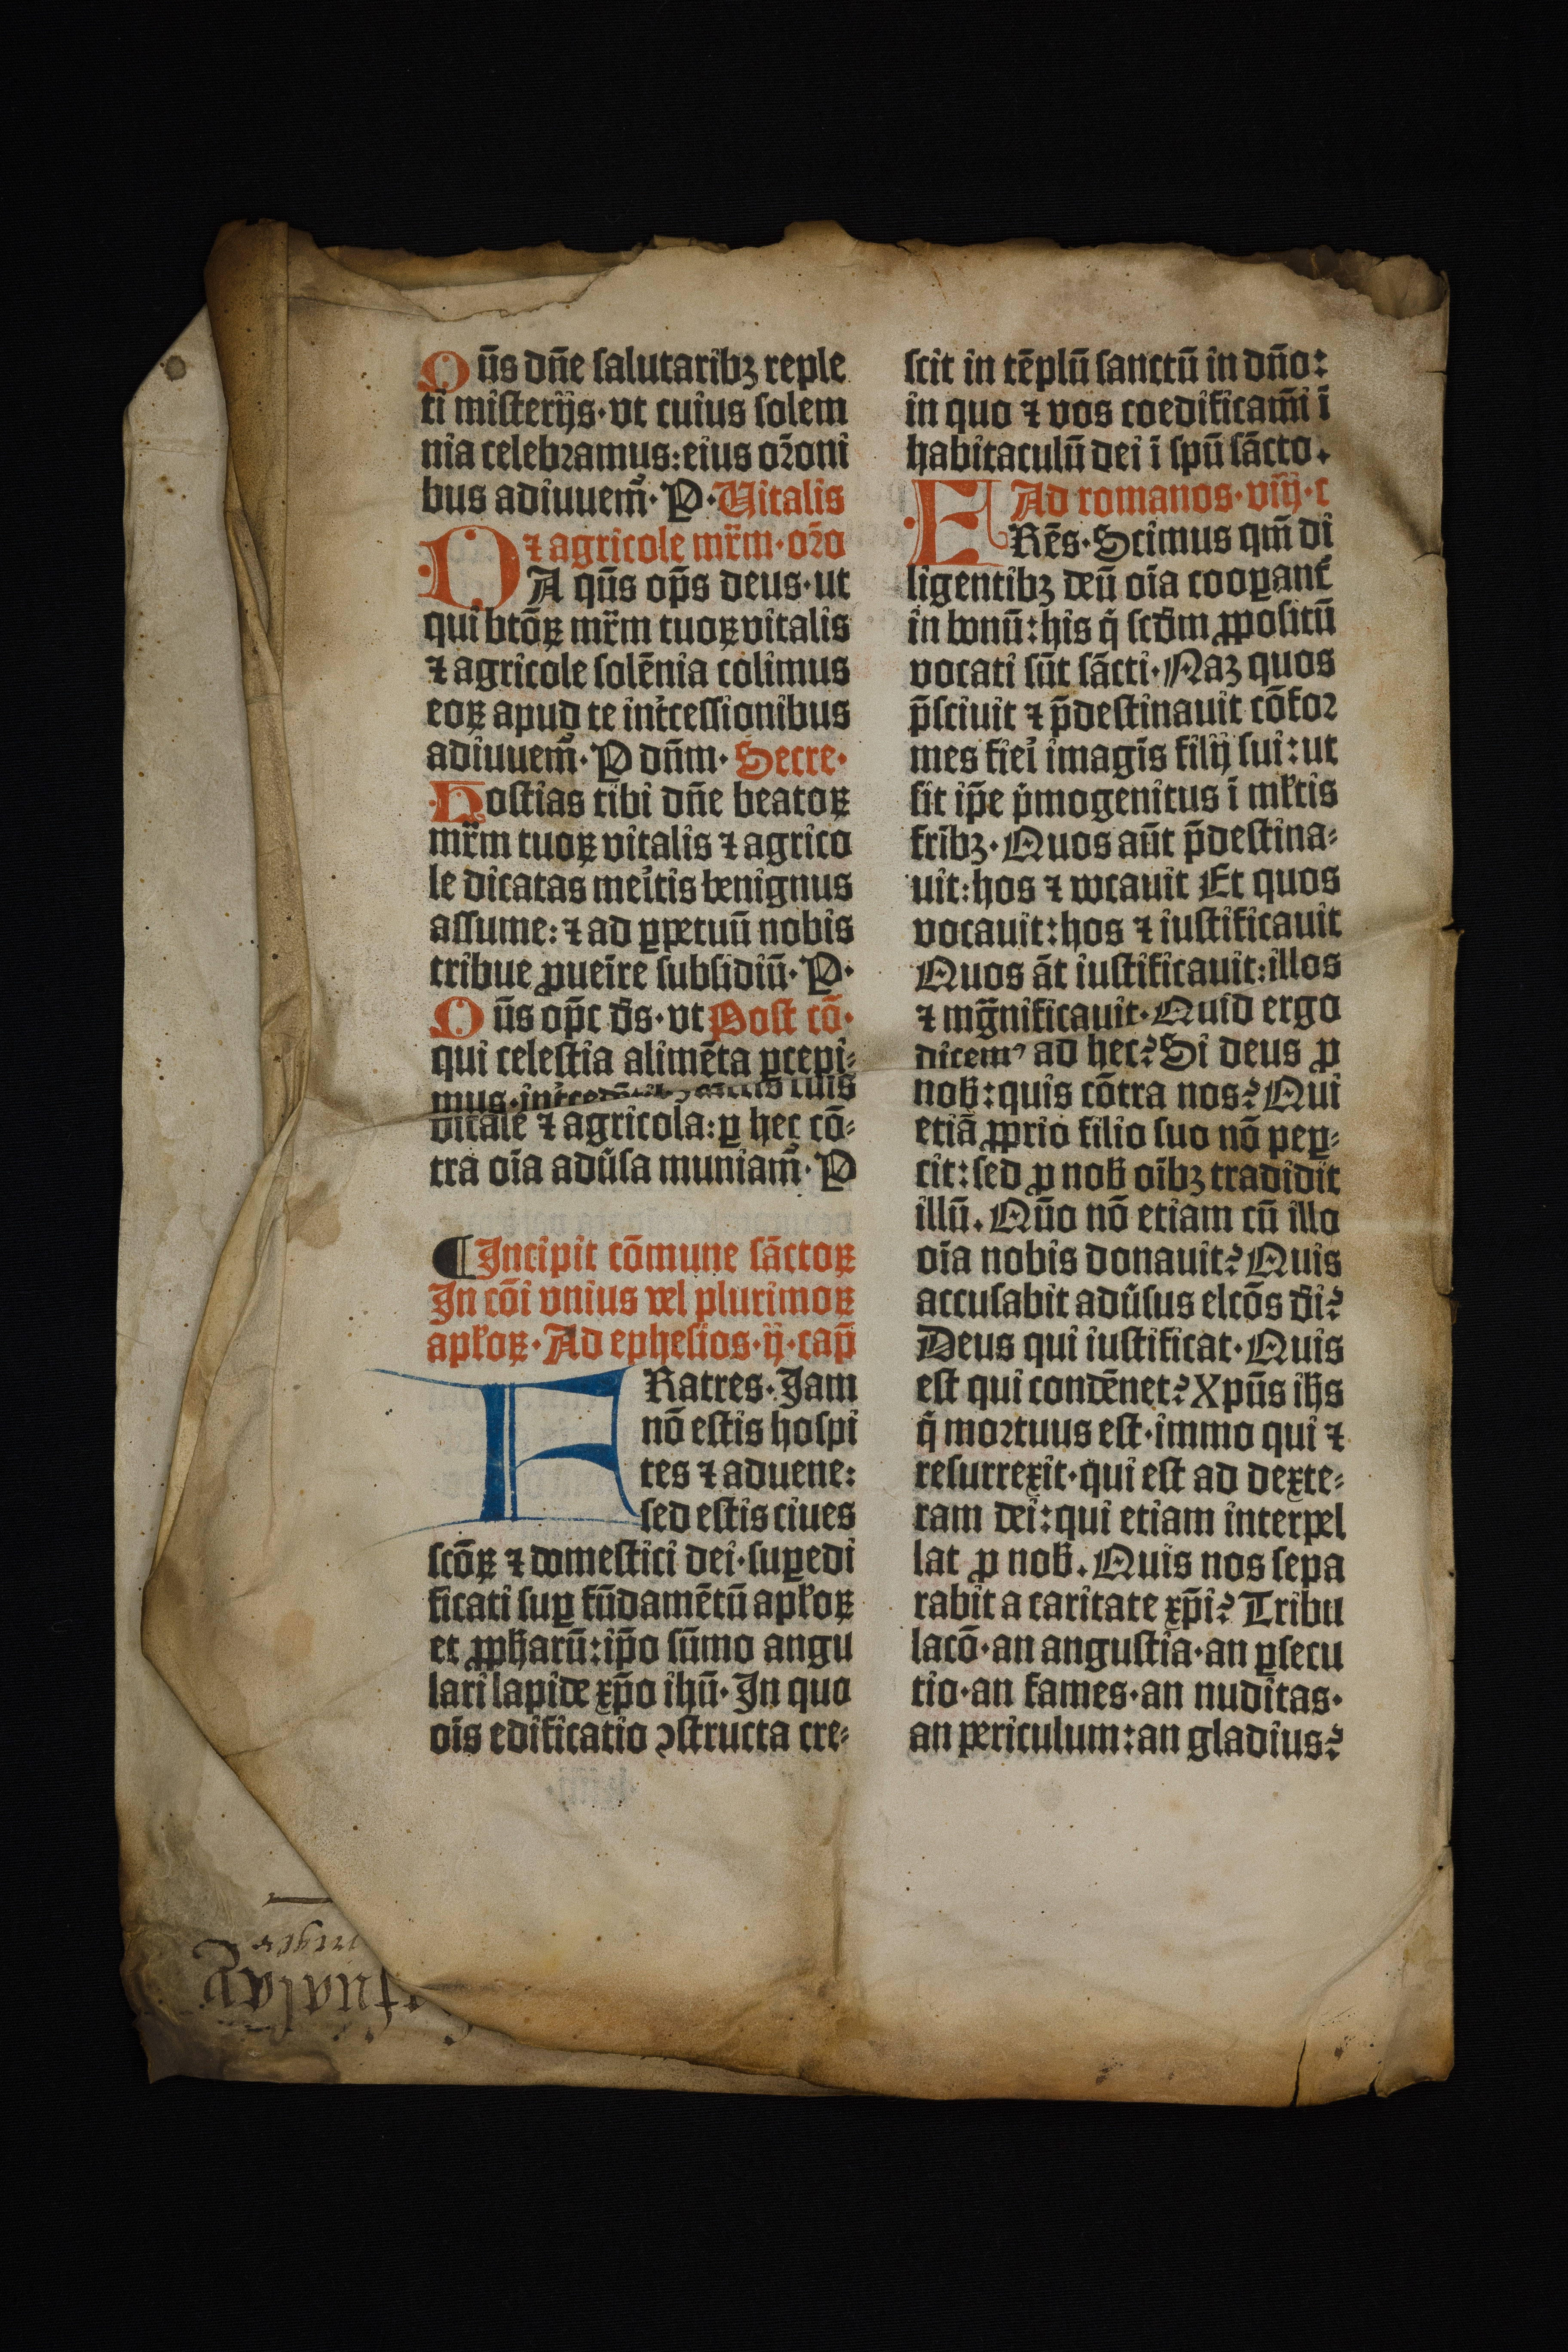 Q ũs dñe salutaribꝫ reple
ti misterijs·vt cuius solem
nia celebꝛamus:eius oꝛ̃oni
bus adiuuem᷒· P·Uitalis
⁊ agricole mr̃m·oꝛ̃o
D A qũs op̃s deus·ut
qui btõꝝ mr̃m tuoꝝ vitalis
⁊ agricole solẽnia colimus
eoꝝ apud te int̾cessionibus
adiuuem᷒· P dñm· Secre·
Hostias tibi dñe beatoꝝ
mr̃m tuoꝝ vitalis ⁊ agrico
le dicatas mei̾tis benignus
assume:⁊ ad ꝑpetuũ nobis
tribue ꝓuei̾re subsidiũ· P·
Q ũs op̃c ds̃·vt Post cõ·
qui celestia alimẽta ꝑcepi⸗
mus· tuis
vitale ⁊ agricola:ꝑ hec cõ⸗
tra oĩa adũsa muniam᷒· P
¶Incipit cõmune sãctoꝝ
In cõi vnius vel plurimoꝝ
apl̃oꝝ·Ad ephesios·ij·cap̃
FRatres·Jam
nõ estis hospi
tes ⁊ aduene:
sed estis ciues
scõꝝ ⁊ domestici dei·suꝑedi
ficati suꝑ fũdamẽtũ apl̃oꝝ
et ꝓph̃arũ:ip̃o sũmo angu
lari lapide xp̃o ihũ· In quo
oĩs edificatio ꝯstructa cre⸗
scit in tẽplũ sanctũ in dño:
in quo ⁊ vos coedificam̃i ĩ
habitaculũ dei ĩ spũ sãcto.
Ad romanos·viij·c
FRẽs·Scimus qm̃ di
ligentibꝫ deũ oĩa cooꝑant̾
in bonũ:his q̃ scd̃m ꝓpositũ
vocati sũt sãcti·Naꝫ quos
p̃sciuit ⁊ p̃destinauit cõfoꝛ
mes fiei̾ imagĩs filij sui:ut
sit ip̃e p̃mogenitus ĩ ml̃tis
frĩbꝫ·Quos aũt p̃destina⸗
uit:hos ⁊ vocauit Et quos
vocauit:hos ⁊ iustificauit
Quos ãt iustificauit:illos
⁊ mg̃nificauit·Quid ergo
dicem᷒ ad hec?Si deus ꝓ
nob̃:quis cõtra nos?Qui
etiã ꝓprio filio suo nõ peꝑ⸗
cit:sed ꝓ nob̃ oĩbꝫ tradidit
illũ.Qũo nõ etiam cũ illo
oĩa nobis donauit?Quis
accusabit adũsus elcõs dĩ?
Deus qui iustificat·Quis
est qui condẽnet?Xpũs ih̃s
q̃ moꝛtuus est·immo qui ⁊
resurrexit·qui est ad dexte⸗
ram dei:qui etiam interpel
lat ꝓ nob̃.Quis nos sepa
rabit a caritate xp̃i?Tribu
lacõ·an angustia·an ꝑsecu
tio·an fames·an nuditas·
an periculum:an gladius?